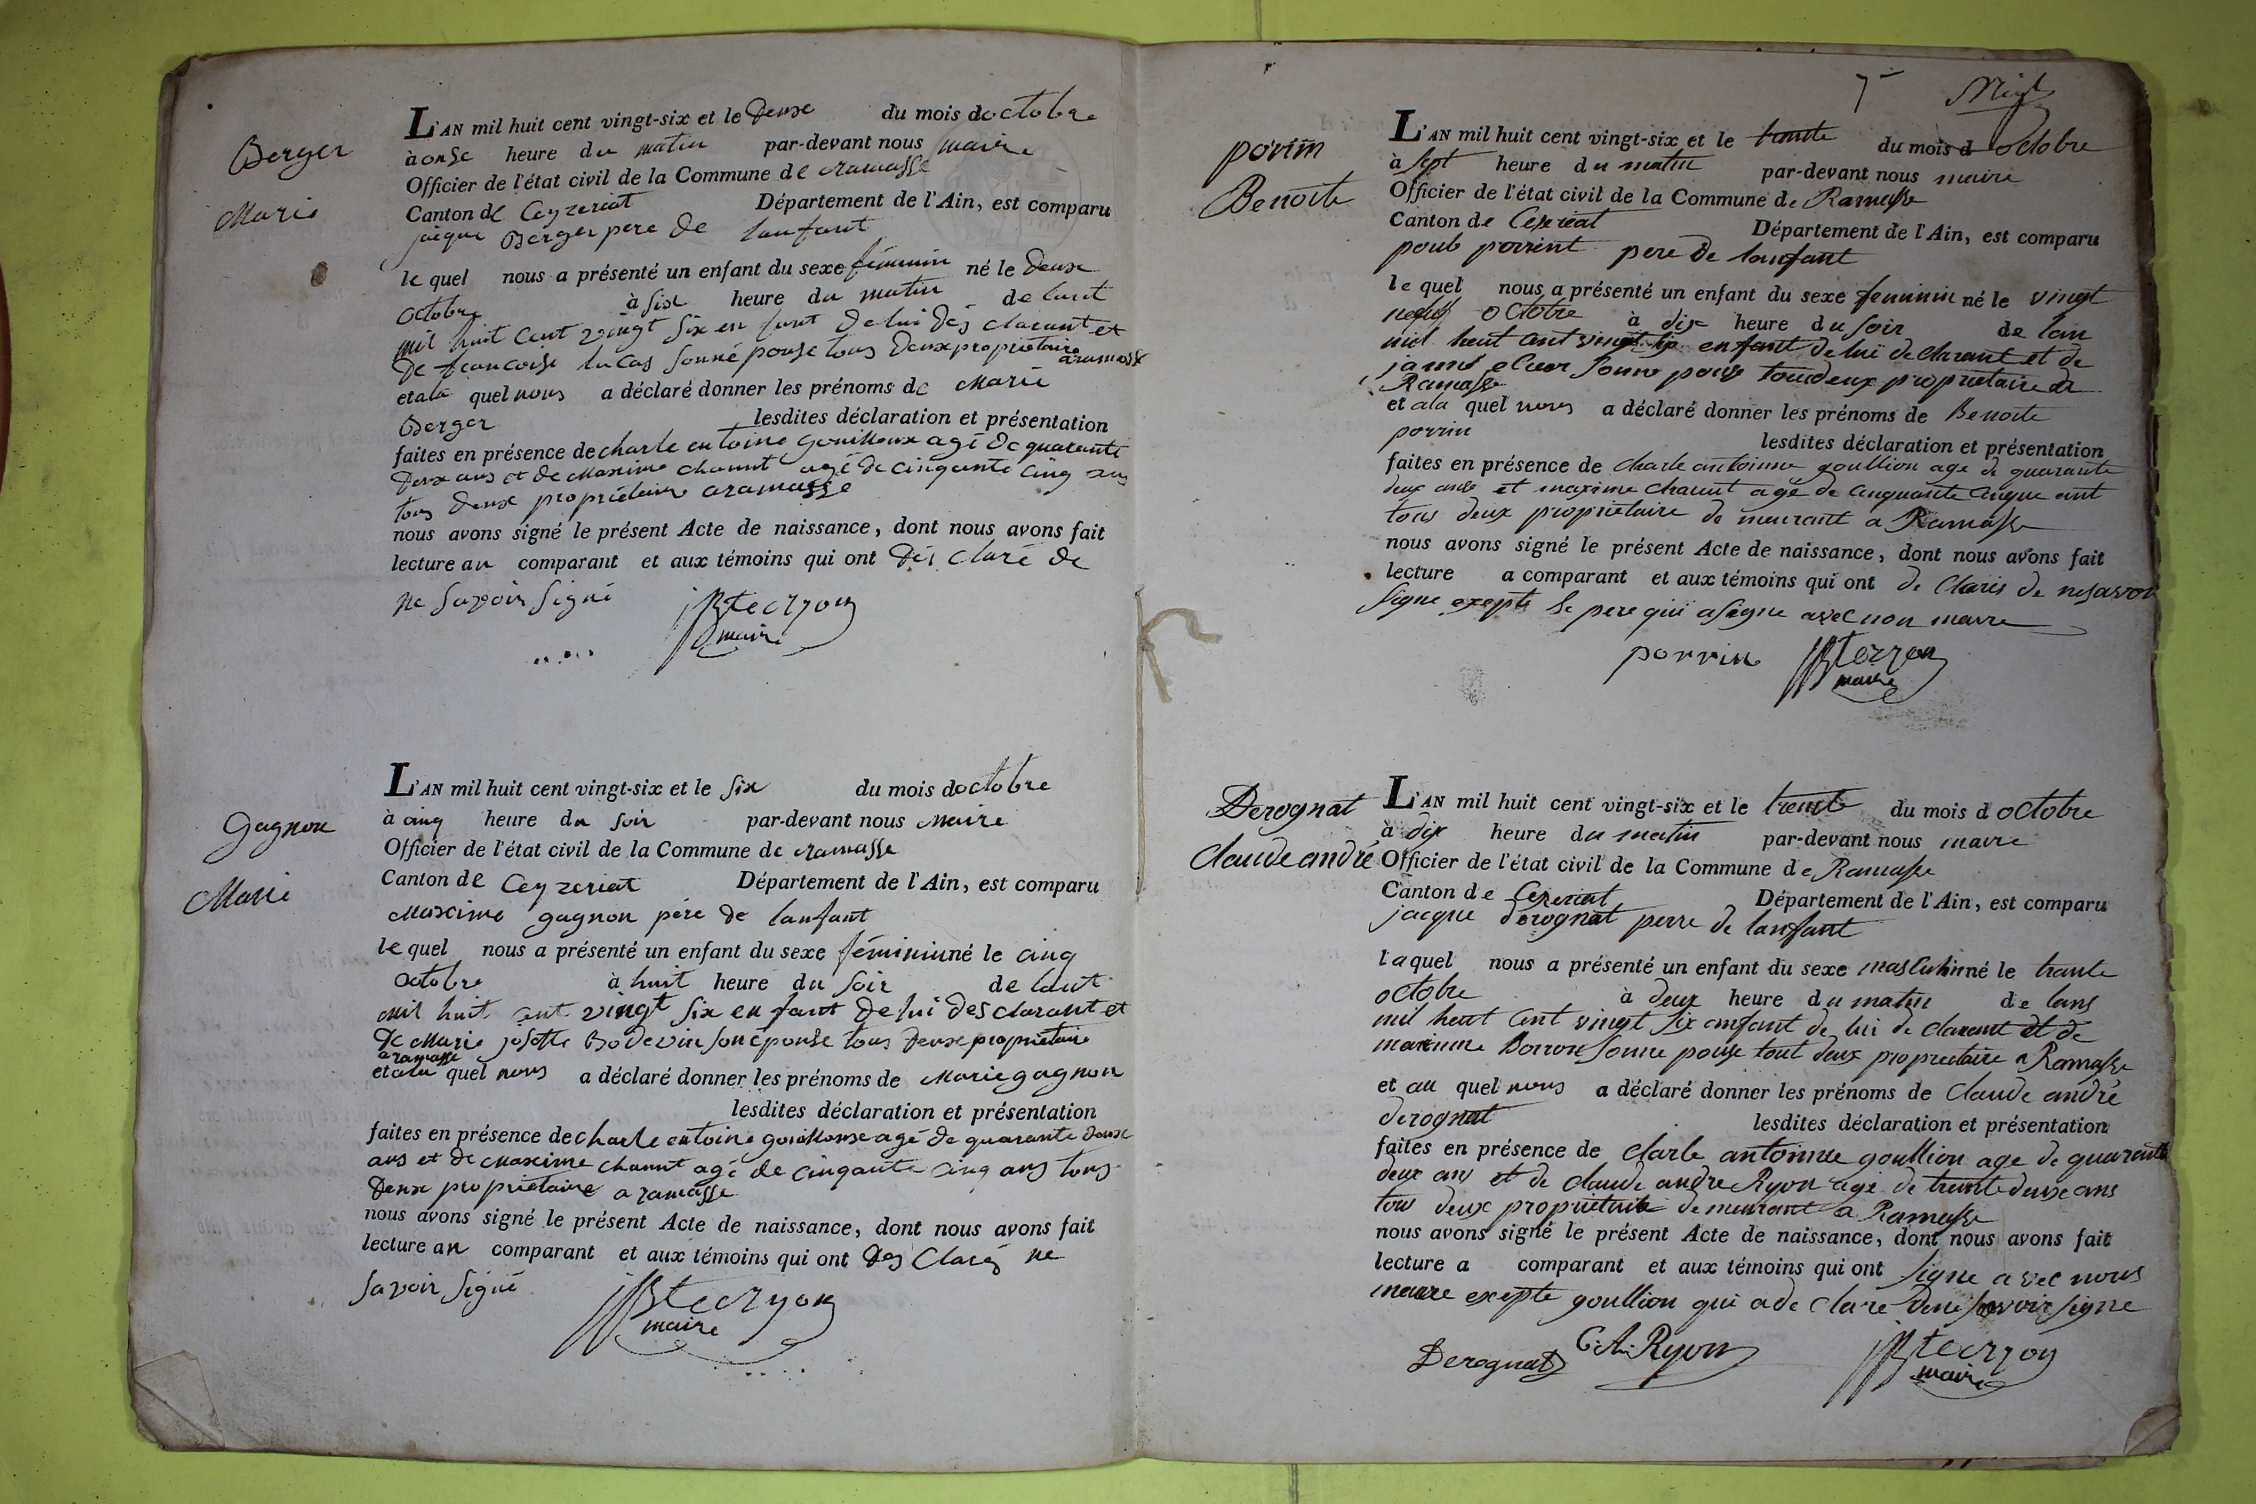 Berger
Marie
L'AN mil huit cent vingt-six et le deuxe du mois doctobre
à onse heure du matin par-devant nous maire
Officier de l'état civil de la Commune de aramasse
Canton de Ceyzeriat Département de l'Ain, est comparu
jacque Berger pere de lanfant
le quel nous a présenté un enfant du sexe féminin né le deuxe
octobre à six heure du matin de lant
mil huit cent vingt six en fant de lui dés clarant et
de francoise lucas sonné pouse tous deux propriétaire
aramasse
et a la quel nous a déclaré donner les prénoms de Marie
Berger lesdites déclaration et présentation
faites en présence de charle entoine gouilloux agé de quarante
deux ans et de Maxime chanut agé de cinqante cinq ans
tous deux propriétaire aramasse
nous avons signé le présent Acte de naissance, dont nous avons fait
lecture au comparant et aux témoins qui ont dés claré de
ne savoir signé
maire
Gagnon
Marie
L'AN mil huit cent vingt-six et le six du mois doctobre
à cinq heure du soir par-devant nous maire
Officier de l'état civil de la Commune de aramasse
Canton de Ceyzeriat Département de l'Ain, est comparu
Maxime gagnon pére de lanfant
le quel nous a présenté un enfant du sexe féminin né le cinq
octobre à huit heure du soir de lant
mil huit cent vingt six en fant de lui des clarant et
de Marie josette Bodevin son éponse tous deux propriétaire
aramasse
et a la quel nous a déclaré donner les prénoms de Marie gagnon
lesdites déclaration et présentation
faites en présence de charle entoine gouilloux agé de quarante deux
ans et de Maxime chanut agé de cinqante cinq ans tous
deux propriétaire a ramasse
nous avons signé le présent Acte de naissance, dont nous avons fait
lecture au comparant et aux témoins qui ont des claré ne
savoir signé
maire
7
porrin
Benoite
L'AN mil huit cent vingt-six et le trante du mois d octobre
à sept heure du matin par-devant nous maire
Officier de l'état civil de la Commune de Ramasse
Canton de Ceseriat Département de l'Ain, est comparu
porrint pere de lanfant
le quel nous a présenté un enfant du sexe feminin né le vingt
neuf octobre à dix heure du soir de lan
mil heut cent vingt six enfant de lui de clarant et de
sonne pouse tous deux propriétaire a
Ramasse
et a la quel nous a déclaré donner les prénoms de Benoite
porrin lesdites déclaration et présentation
faites en présence de charle antoinne goullion age de quarante
deux ans et maxime chanut agé de cinquante cinque ant
tous deux propriétaire de meurant a Ramasse
nous avons signé le présent Acte de naissance, dont nous avons fait
lecture a comparant et aux témoins qui ont de claris de ne savoir
signe exepte le pere qui a signe avec nou maire
porrin
maire
Derognat
Claude andré
L'AN mil huit cent vingt-six et le trente du mois d octobre
à dix heure du matin par-devant nous maire
Officier de l'état civil de la Commune de Ramasse
Canton de Ceseriat Département de l'Ain, est comparu
jacque derognat perre de lanfant
laquel nous a présenté un enfant du sexe masculin né le trante
octobre à deux heure du matin de lans
mil heut cent vingt six anfant de lui de clarant et de
Borron sonne pouse tout deux propriétaire a Ramasse
et au quel nous a déclaré donner les prénoms de Claude andré
derognat lesdites déclaration et présentation
faites en présence de Clarle antoinne goullion age de quarante
deux ans et de claude andre Ryon age de trente deux ans
tous deux propriétaire de meurant a Ramasse
nous avons signé le présent Acte de naissance, dont nous avons fait
lecture a comparant et aux témoins qui ont signe avec nous
maire exepte goullion qui a de clare de ne savoir signe
Derognat C.A. Ryon
maire